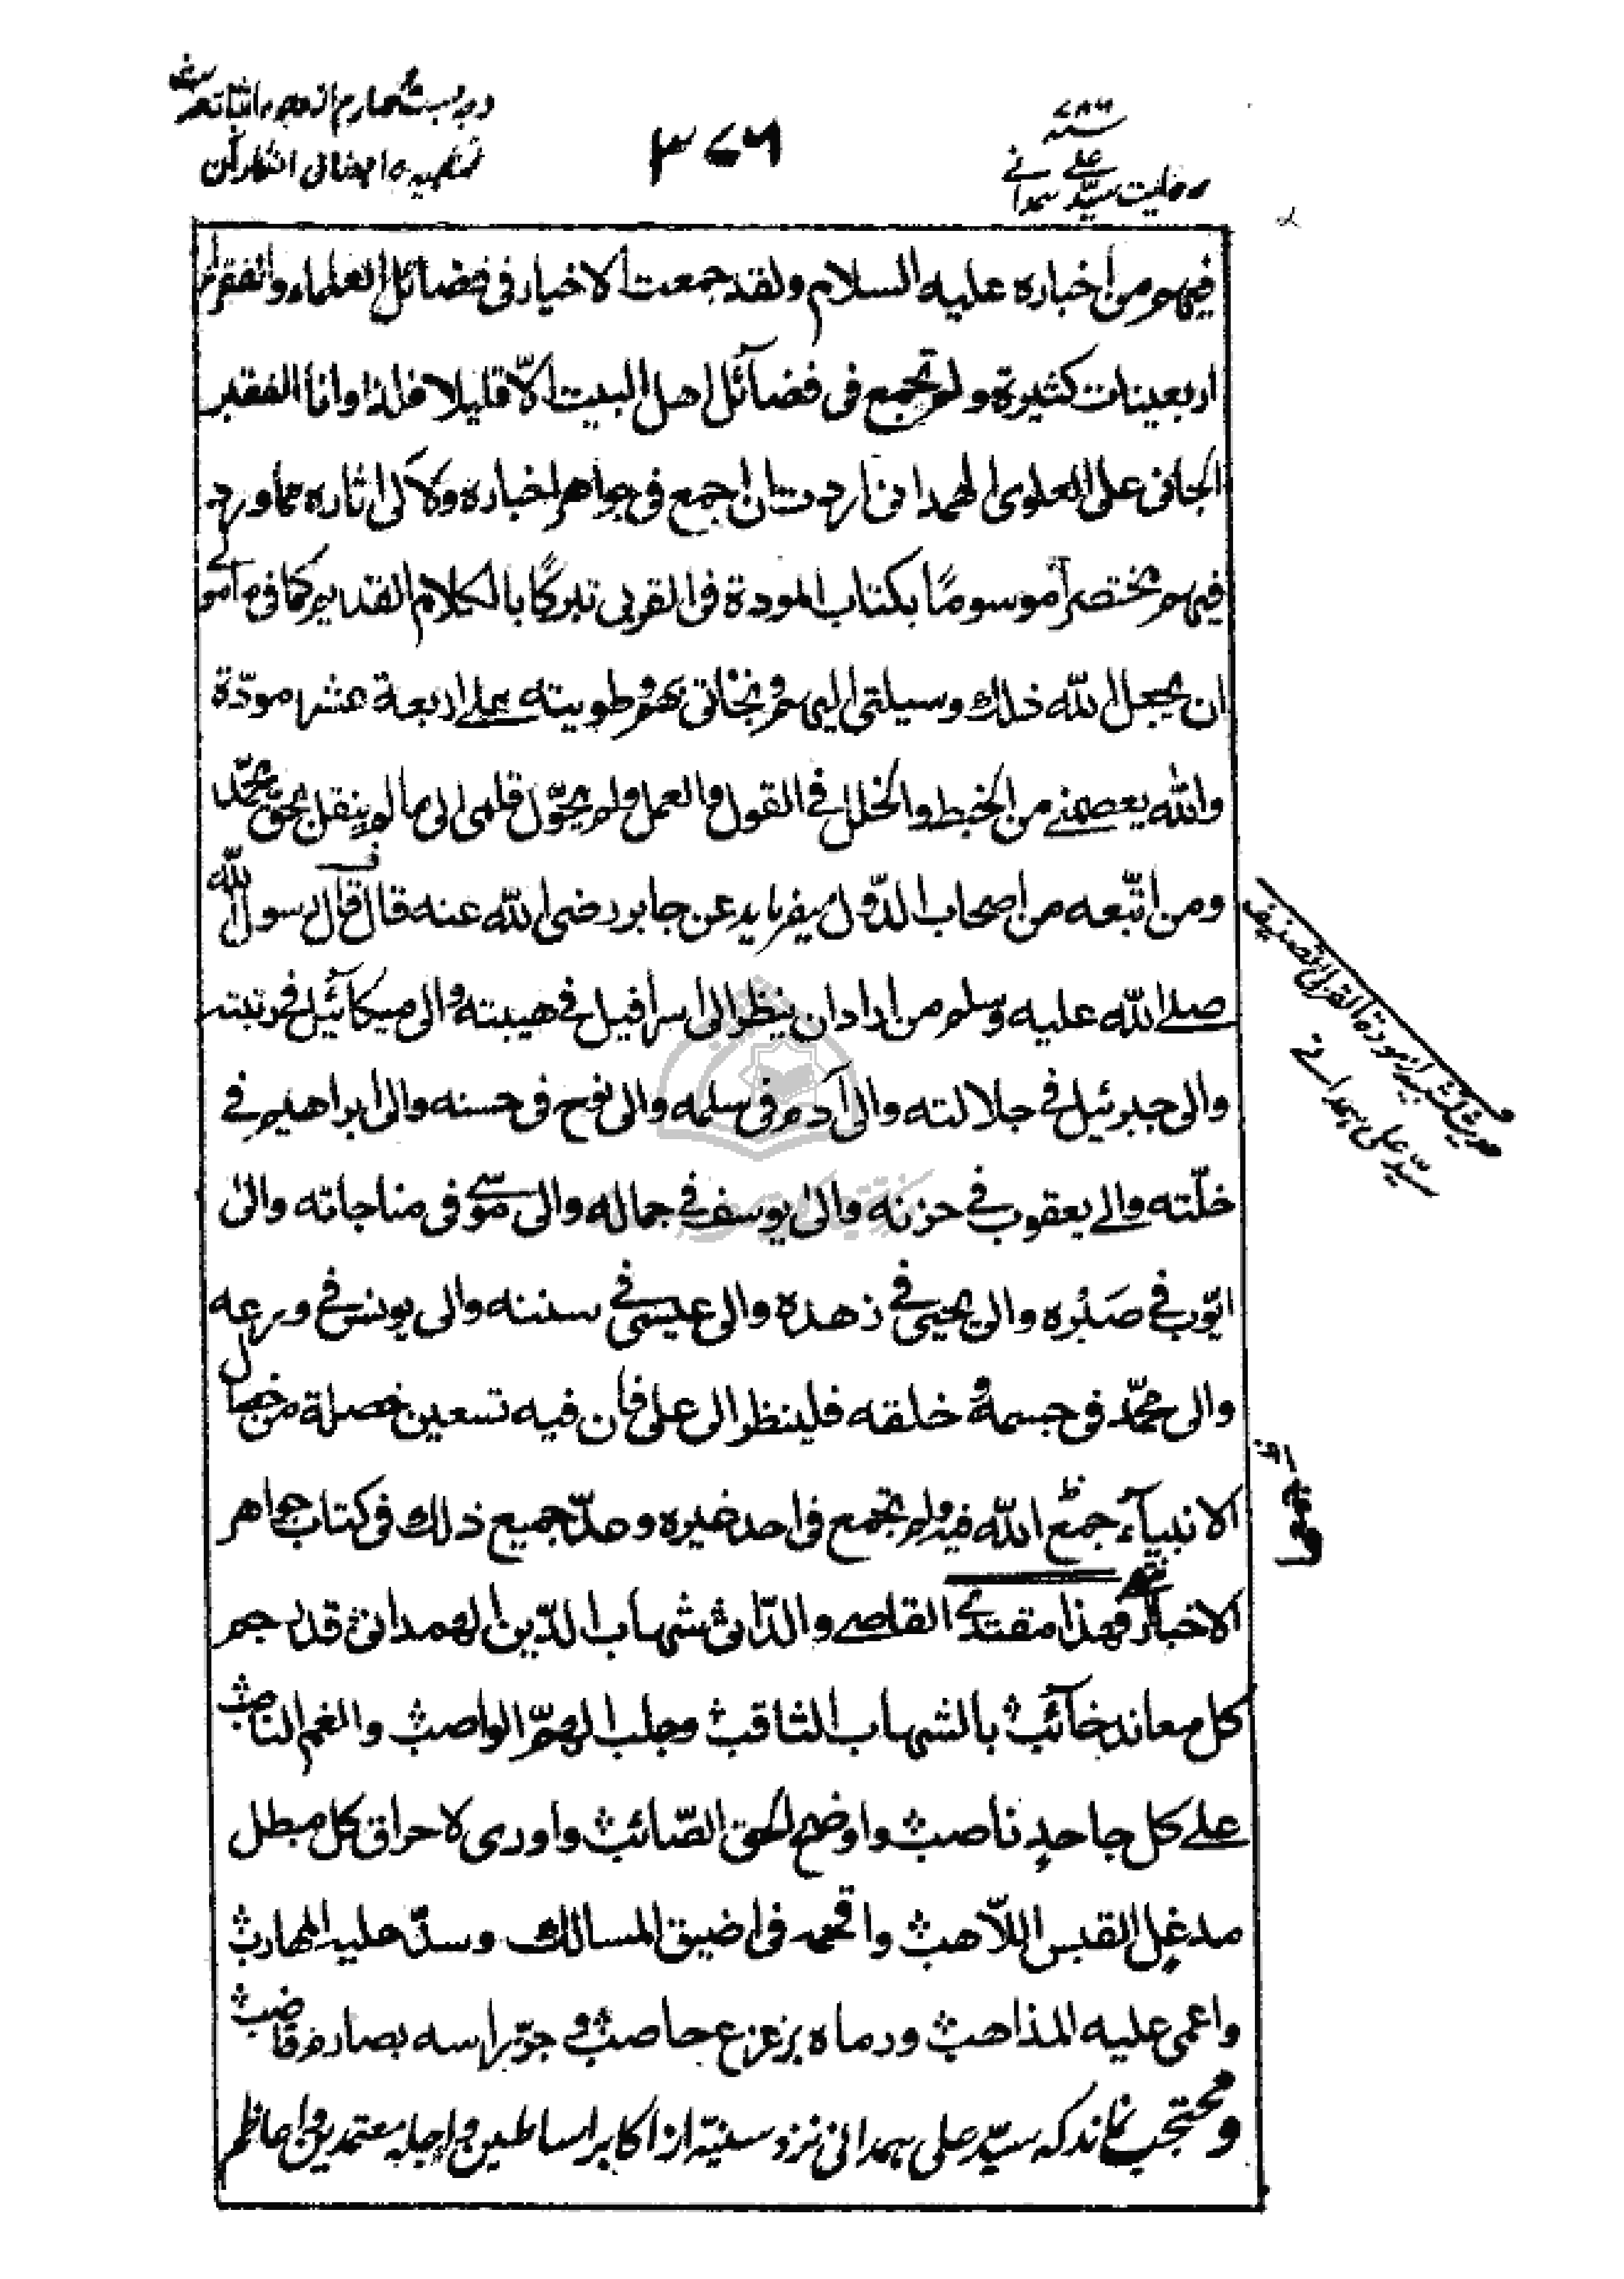 وجه بست و چهارم از وجوه اثبات
۳۷۶
۷۸۶
وفات سید علی همدانی
فيهم من أخباره عليه السلام ولقد جمعت الاخيار في فضائل العلماء والفقراء
اربعينات كثيرة ولم تجمع في فضآئل اهل البيت الّا قليلا فلذا وانا الفقير
الجاني على العلوى الهمداني اردت ان اجمع في جواهر اخباره ولآلى اثاره مما ورد
فيهم مختصراً موسومًا بكتاب المودة في القربى تبركًا بالكلام القديم كما في مأمولى
ان يجعل الله ذلك وسيلتى اليهم ونجاتى بهم وطويته على اربعة عشر مودّة
والله يعصمنى من الخبط والخلل في القول والعمل ولم يحوّل قلمى الى مالم ينقل بحق محمّد
ومن اتّبعه من اصحاب الدّول ميفرمايد عن جابر رضى الله عنه قال قال رسول الله
صلى الله عليه وسلم من اراد ان ينظر الى اسرافيل في هيبته والى ميكائيل في رتبته
والى جبرئيل في جلالته والى آدم في سلمه والى نوح في حسنه والى ابراهيم في
خلّته والى يعقوب في حزنه والى يوسف في جماله والى موسى في مناجاته والى
ايّوب في صبره والى يحيى في زهده والى عيسى في سننه والى يونس في ورعه
والى محمّد في جسمه وخلقه فلينظر الى على فان فيه تسعين خصلة من خصال
الانبيآء جمع الله فيه ولم تجمع في احد غيره وعدّ جميع ذلك في كتاب جواهر
الاخبار فهذا مقتدى القاصى والدّانى شهاب الدّين الهمدانى قد رجم
كل معاند خآئب بالشهاب الثاقب وجلب الهمّ الواصب والغم الناصب
على كل جاحد ناصب واوضح الحق الصّائب واورى لاحراق كل مبطل
مدغل القبس اللّاهب واقحمه في اضيق المسالك وسدّ عليه المهارب
واعمى عليه المذاهب ورماه بزعزع حاصب وجوّر راسه بصارم قاضب
ومحتجب نماند كه سيّد على همدانى نزد سنيّه از اكابر اساطين واجله معتمدين واعاظم
حديث تشبيه از مودة القربى تصنيف
سيّد على همدانى